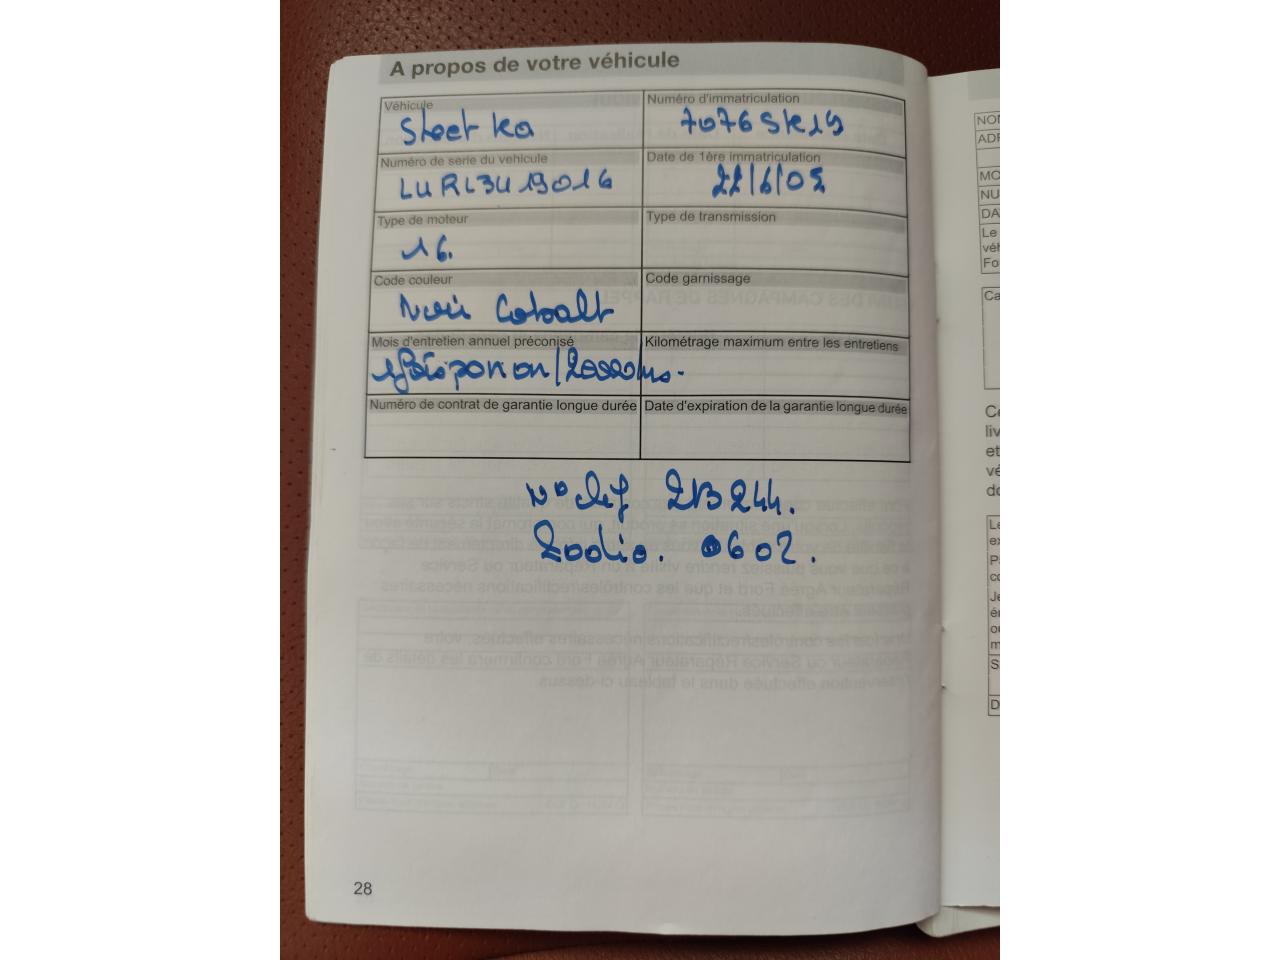 A propos de votre véhicule
Véhicule
Street Ka
Numéro d'immatriculation
7076SK19
Numéro de serie du vehicule
LURL3U19016
Date de 1ère immatriculation
22/6/05
Type de moteur
16.
Type de transmission
Code couleur
Noir Cobalt
Code garnissage
Mois d'entretien annuel préconisé
Kilométrage maximum entre les entretiens
par an/20000
Numéro de contrat de garantie longue durée
Date d'expiration de la garantie longue durée
N° clef 2B244.
Radio. 0602.
28
NOM
Le
Fo